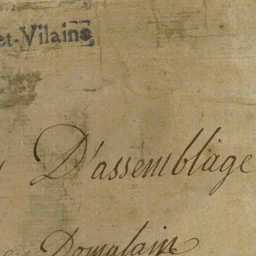 et-Vilaine
D'assemblage
en Domalain